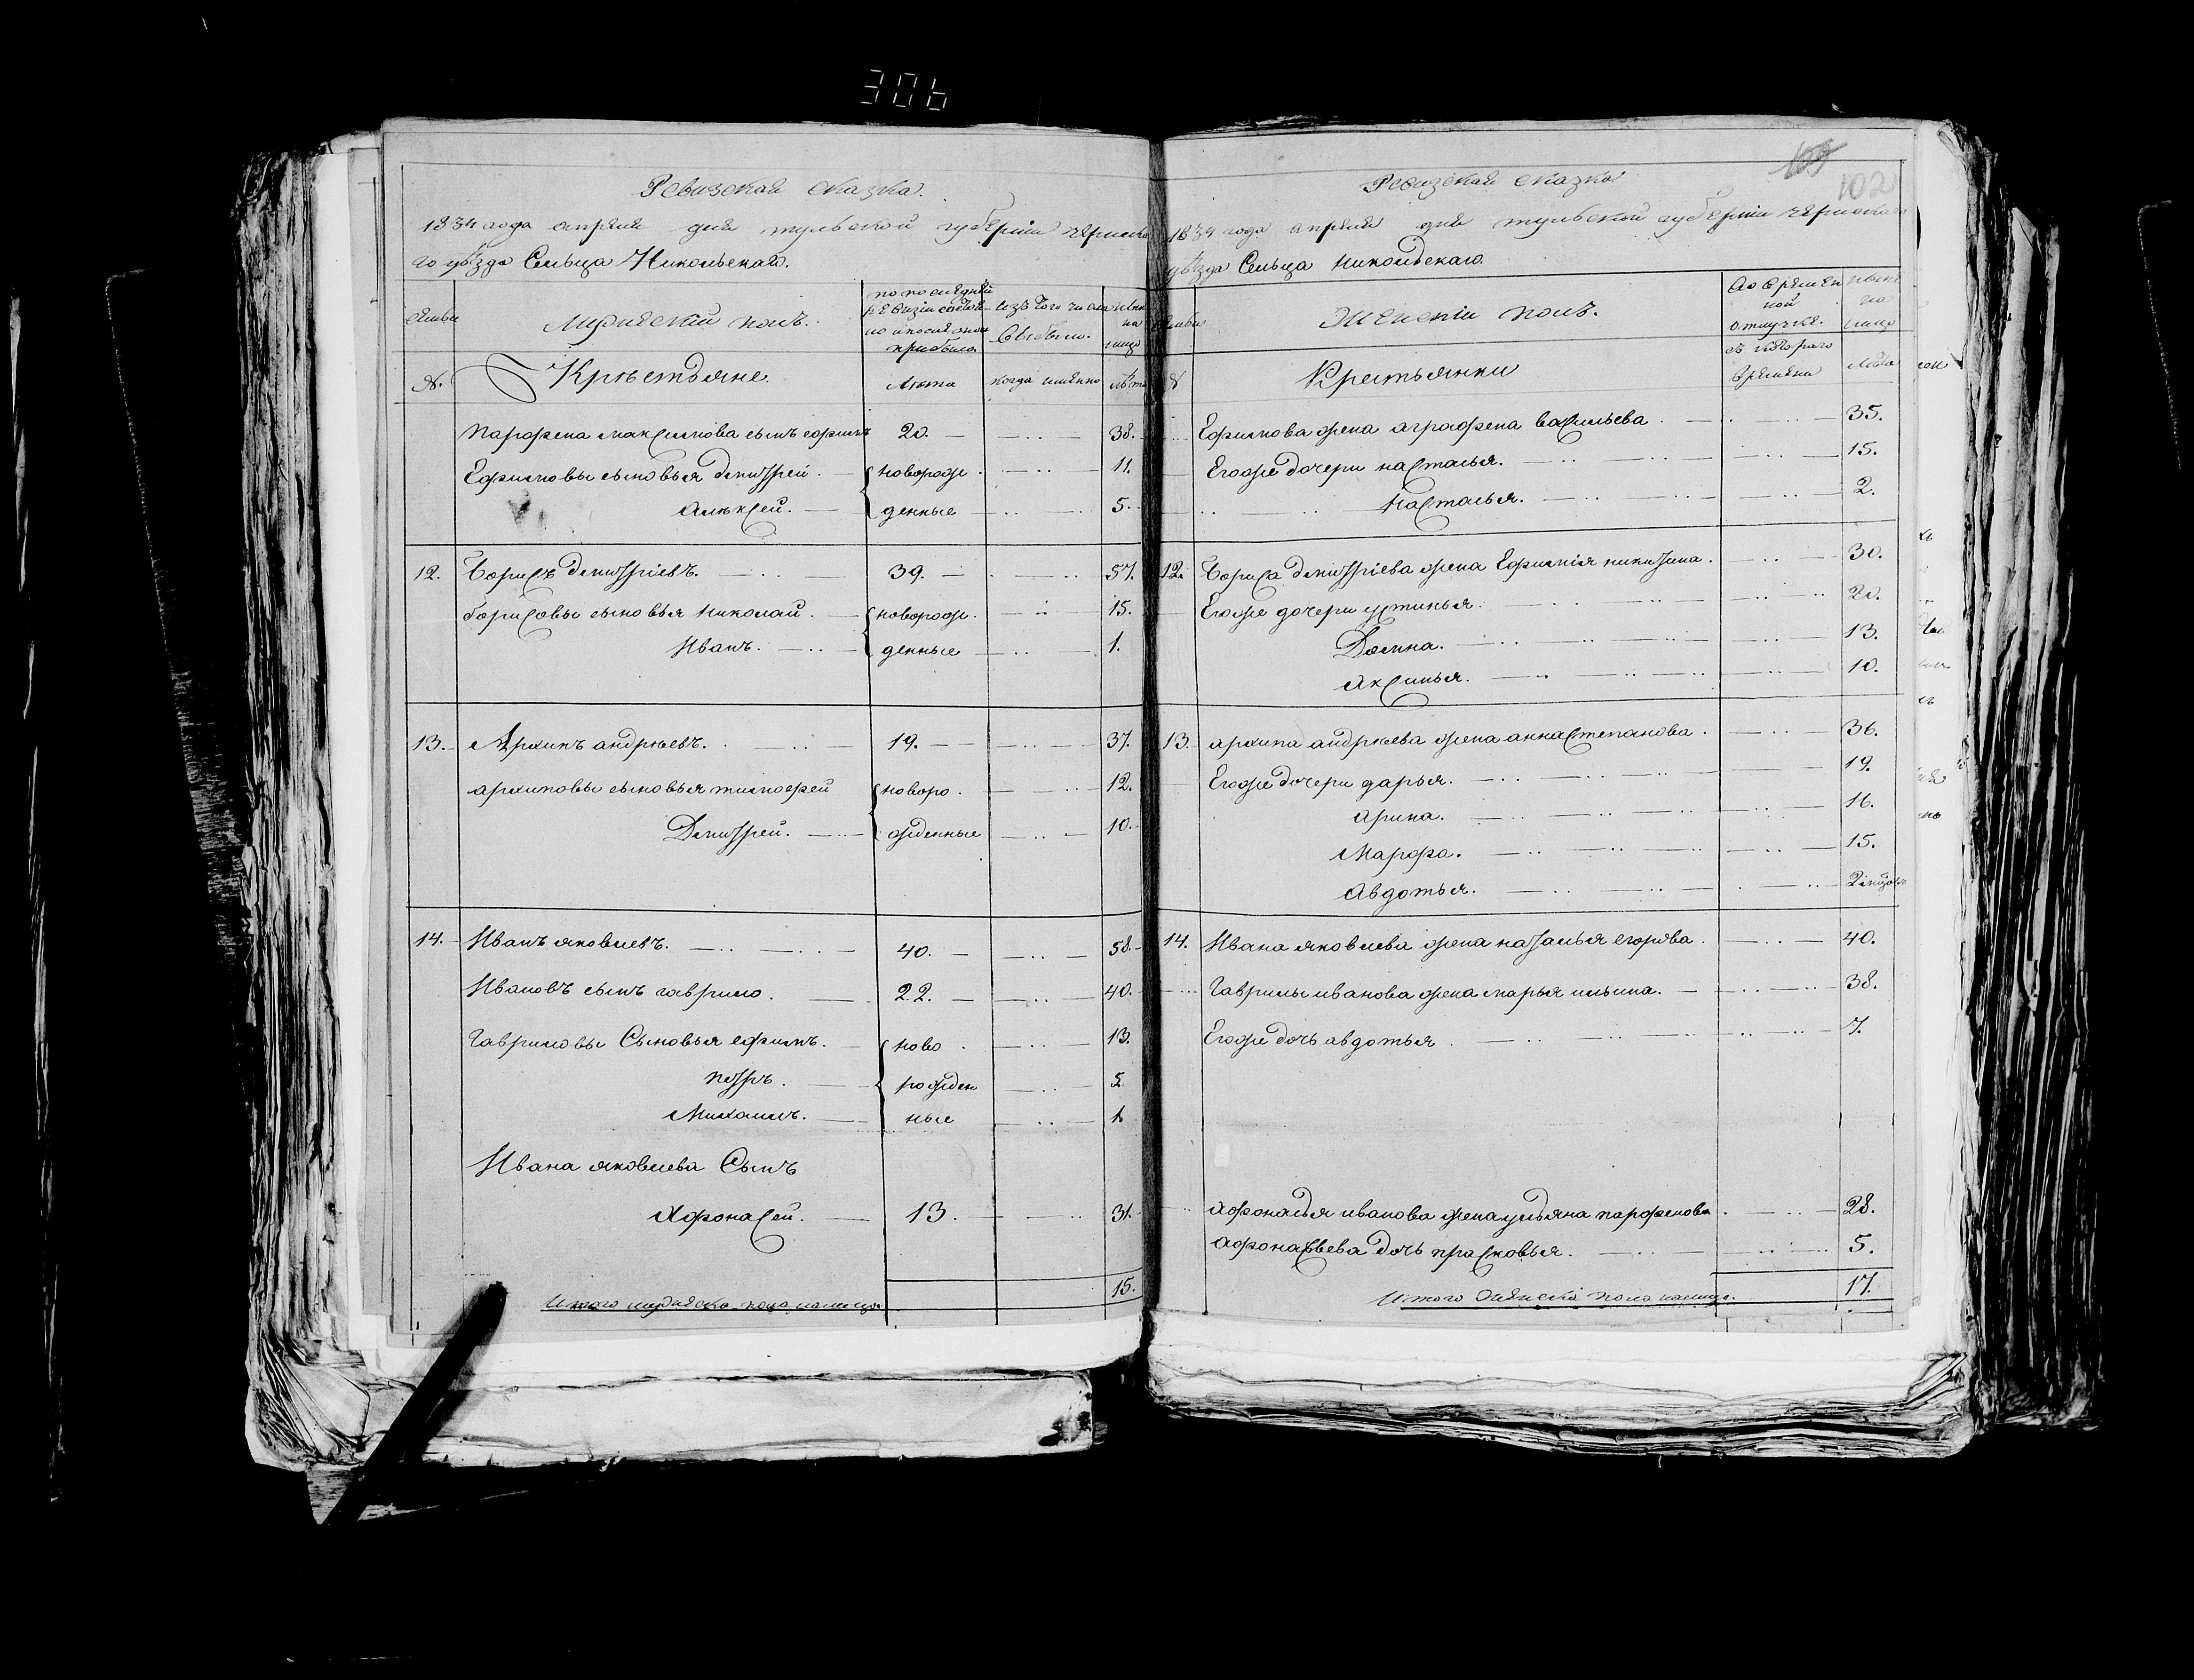 306
Ревизская сказка.
1834 года апреля дня тульской губерніи чернска
го уѣзда Сельца Никольскаго.
семьи
Мужескій полъ.
по последней ревизіи состояло и после оной прибыло.
изъ того числа выбыло.
ныне на лицо
№.
Крѣстьяне.
Лѣта
когда именно
лѣта
Парфена максимова сынъ ефимъ 20. 38.
Ефимовы сыновья дмитрей. новорож. 11.
алѣксей. денные 5.
12. Борисъ дмитріевъ. 39. 57.
борисовы сыновья николай. новорож. 15.
Иванъ. денные 1.
13. Архипъ андрѣевъ. 19. 37.
архиповы сыновья тимофей новоро. 12.
Дмитрей. жденные 10.
14. Иванъ яковлевъ. 40. 58.
Ивановъ сынъ гаврило. 22. 40.
Гавриловы Сыновья ефимъ. ново 13.
петръ. рожден 5
Михаилъ. ные 1
Ивана яковлева Сынъ
Афонасей. 13. 31.
Итого мужеска пола на лицо 15.
102
Ревизская сказка
1834 года апреля дня тульской губерніи чернскаго
уѣзда Сельца никольскаго.
семьи
Женскій полъ.
во времен ной отлучке.
ныне на лицо
№
Крестьянки
съ котораго времени
лѣта
Ефимова жена аграфена васильева. 35.
Егоже дочери настасья. 15.
настасья. 2.
12. Бориса дмитріева жена Ефимія никитина. 30.
Егоже дочери устинья. 20.
Домна. 13.
аксинья. 10.
13. архипа андрѣева жена анна степанова. 36.
Егоже дочери дарья. 19.
арина. 16.
Марфа. 15.
Авдотья. 2
14. Ивана яковлева жена наталья егорова. 40.
Гаврилы иванова жена марья ильина. 38.
Егоже дочь авдотья 7.
афонасья иванова жена ульяна парфенова. 28.
афонасьева дочь прасковья. 5.
Итого женска пола налицо. 17.